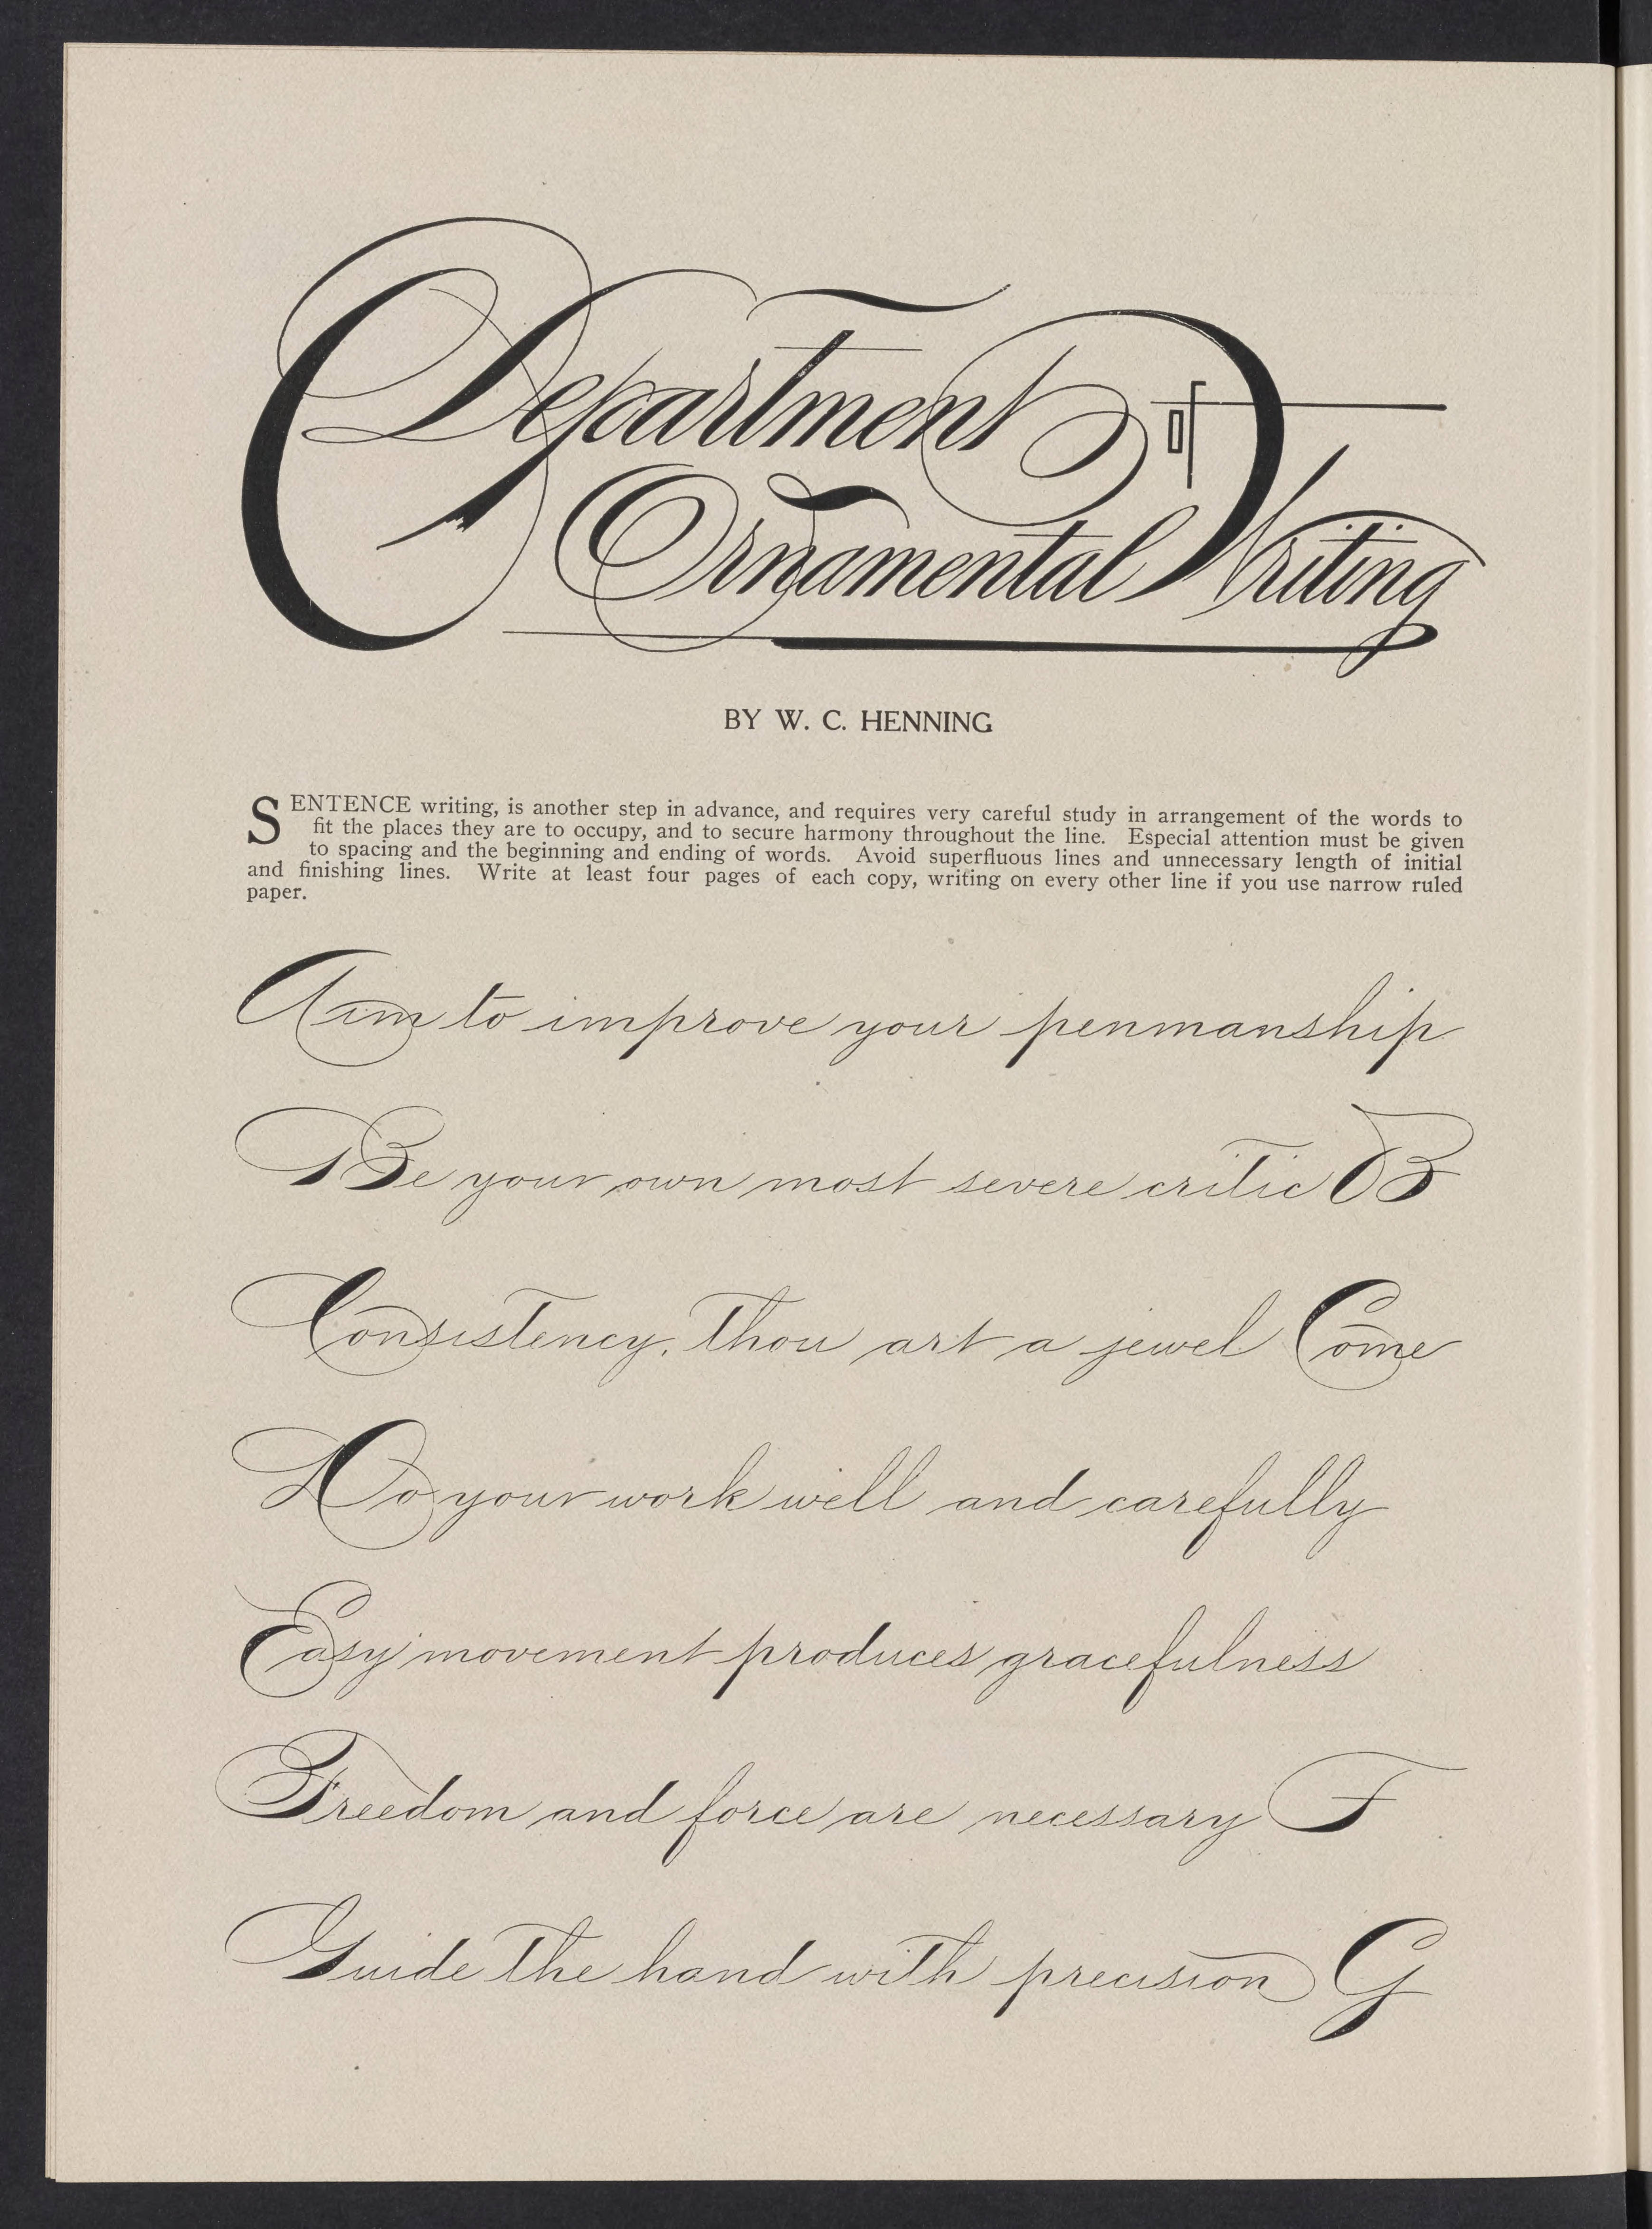 Department of
Ornamental Writing
BY W. C. HENNING
SENTENCE writing, is another step in advance, and requires very careful study in arrangement of the words to
fit the places they are to occupy, and to secure harmony throughout the line. Especial attention must be given
to spacing and the beginning and ending of words. Avoid superfluous lines and unnecessary length of initial
and finishing lines. Write at least four pages of each copy, writing on every other line if you use narrow ruled
paper.
Aim to improve your penmanship
Be your own most severe critic B
Consistency, thou art a jewel Come
Do your work well and carefully
Easy movement produces gracefulness
Freedom and force are necessary F
Guide the hand with precision G